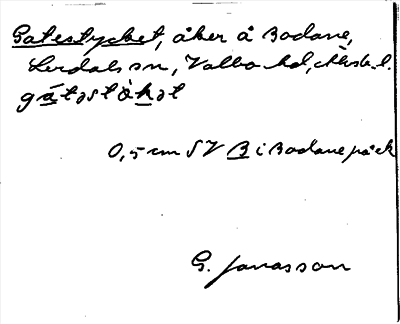 Gatestycket, åker å Bodane,
Lerdals sn, Valbo hd, Älvsb. l.
gátəstòkət
0,5 cm SV B i Bodane på ek
G. Jonasson